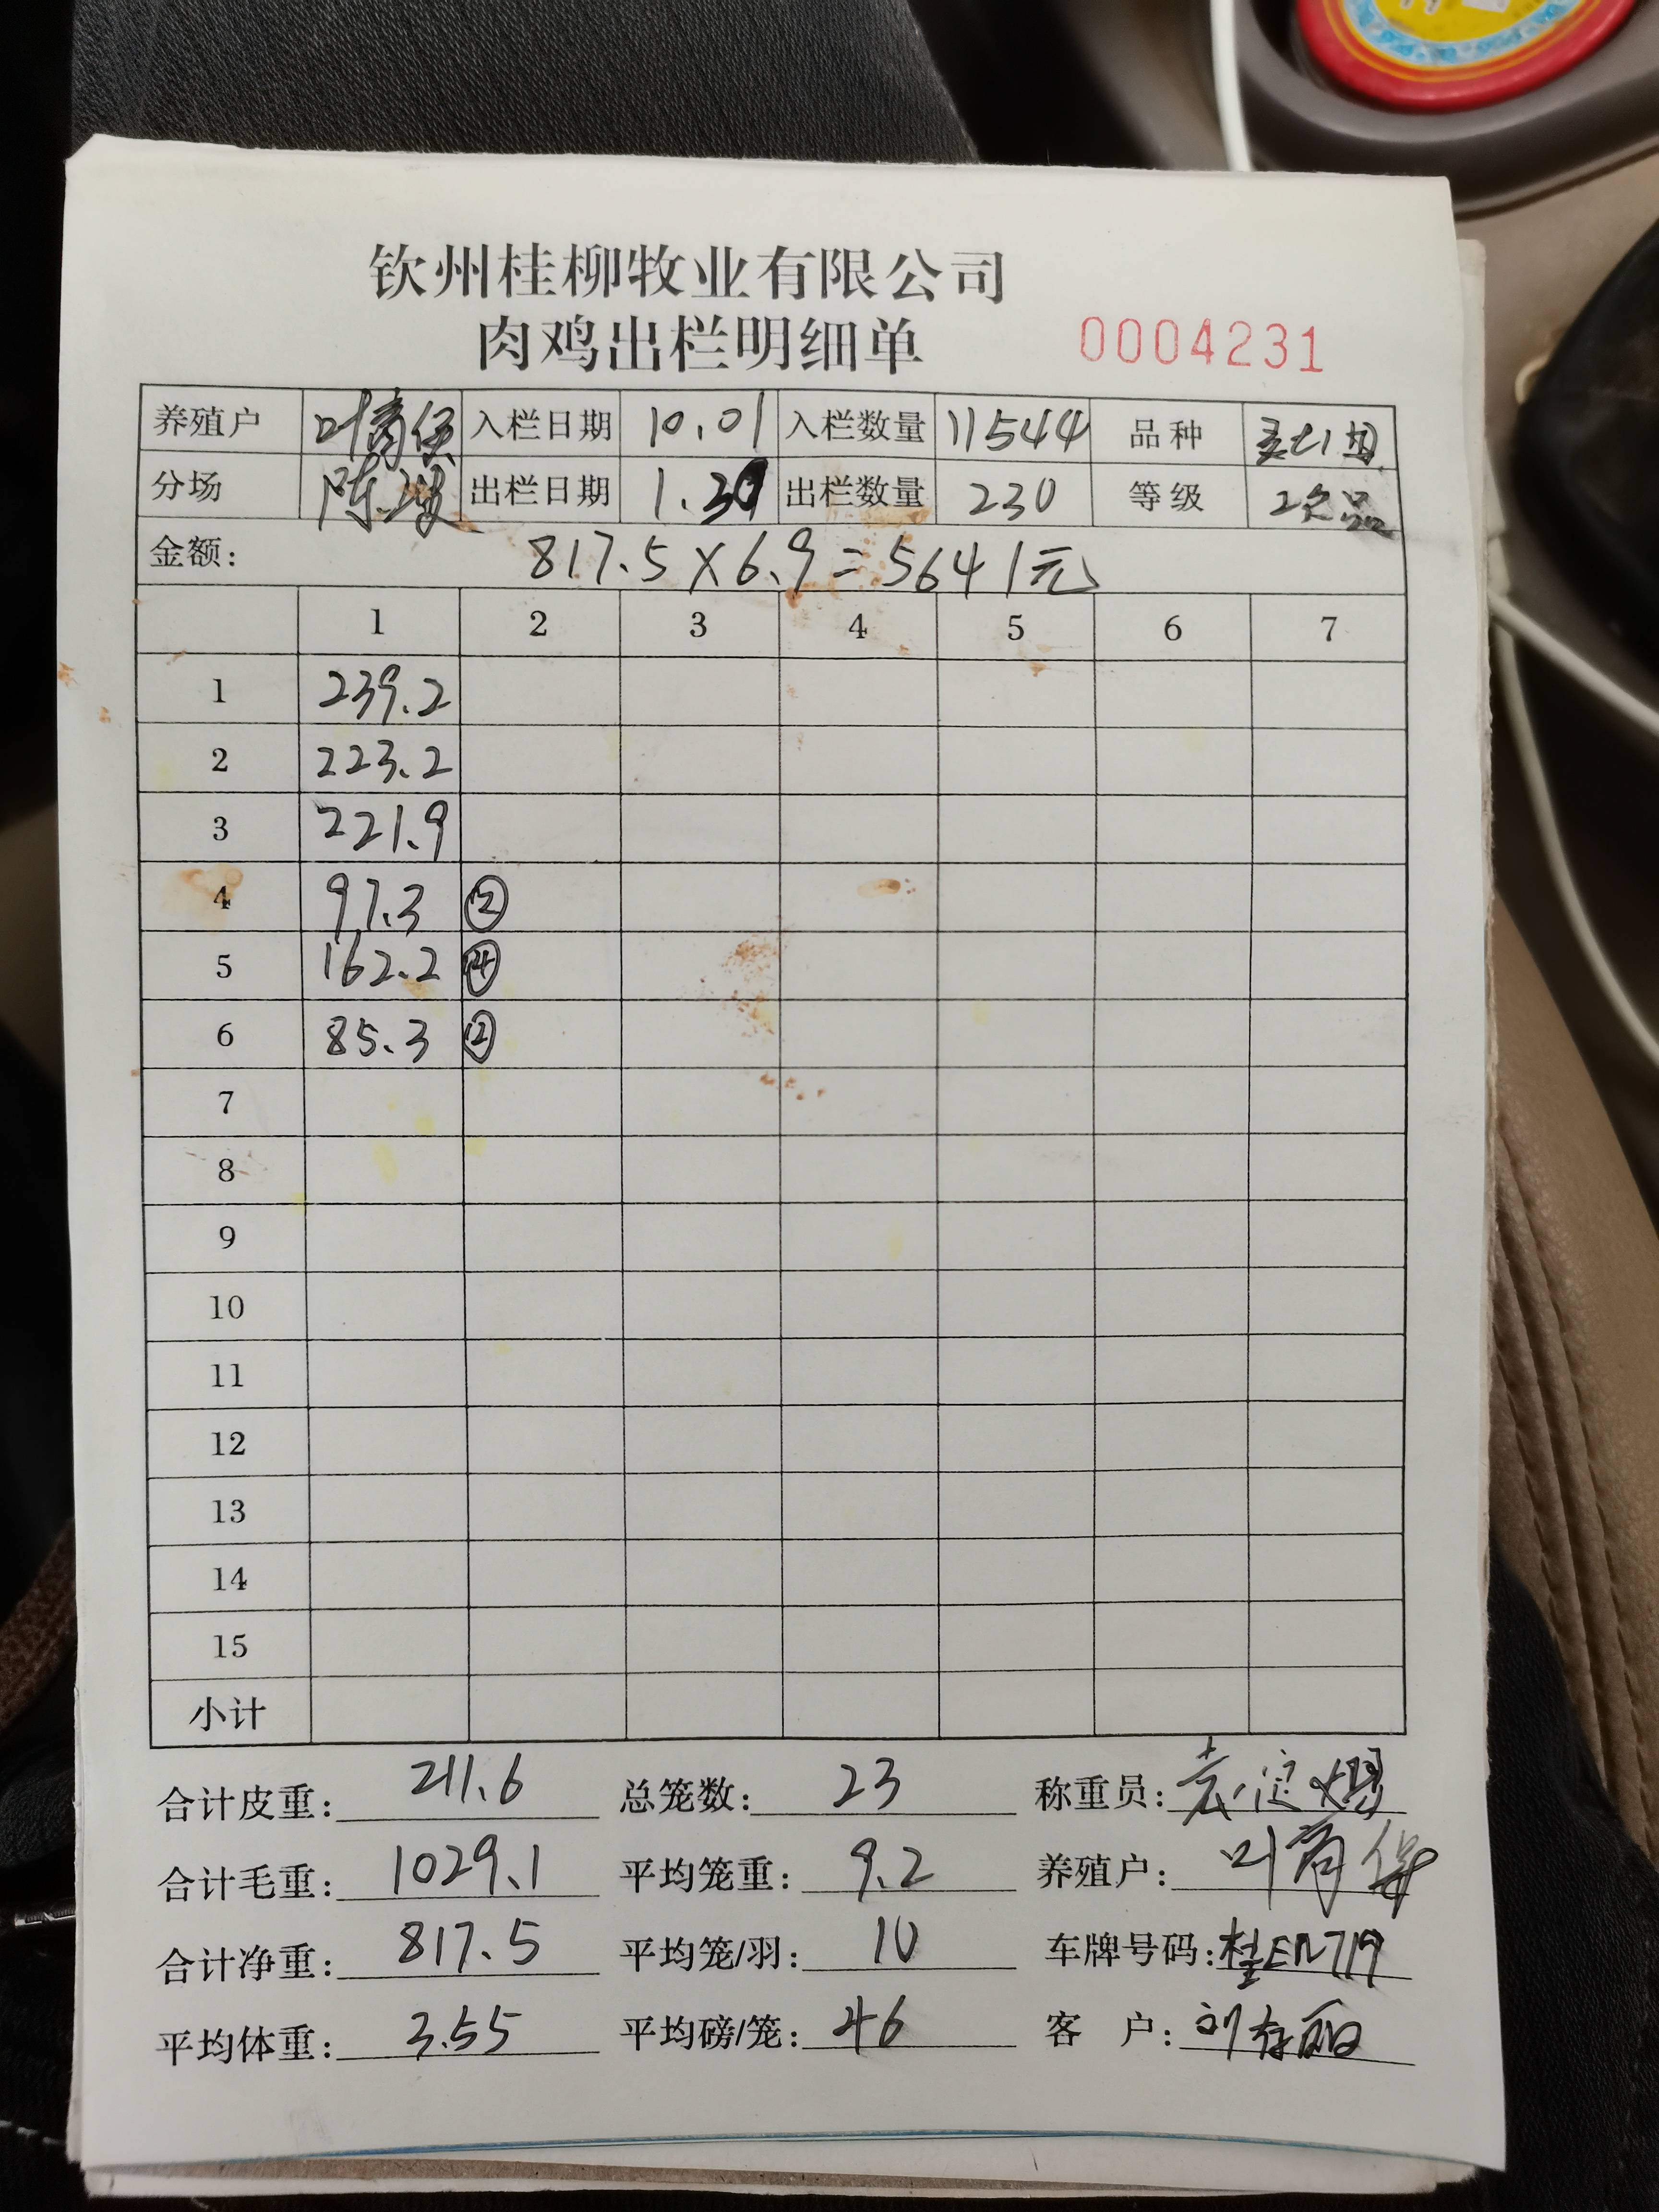 钦州桂柳牧业有限公司
肉鸡出栏明细单 0004231
养殖户 入栏日期 10.01 入栏数量 11544 品种
分场 陈 出栏日期 1.30 出栏数量 230 等级 次品
金额: 817.5×6.9=5641元
1 2 3 4 5 6 7
1 239.2
2 223.2
3 221.9
4 97.3 ②
5 162.2 ④
6 85.3 ②
7
8
9
10
11
12
13
14
15
小计
合计皮重: 211.6 总笼数: 23 称重员:
合计毛重: 1029.1 平均笼重: 9.2 养殖户:
合计净重: 817.5 平均笼/羽: 10 车牌号码:
平均体重: 3.55 平均磅/笼: 46 客 户: 刘存丽